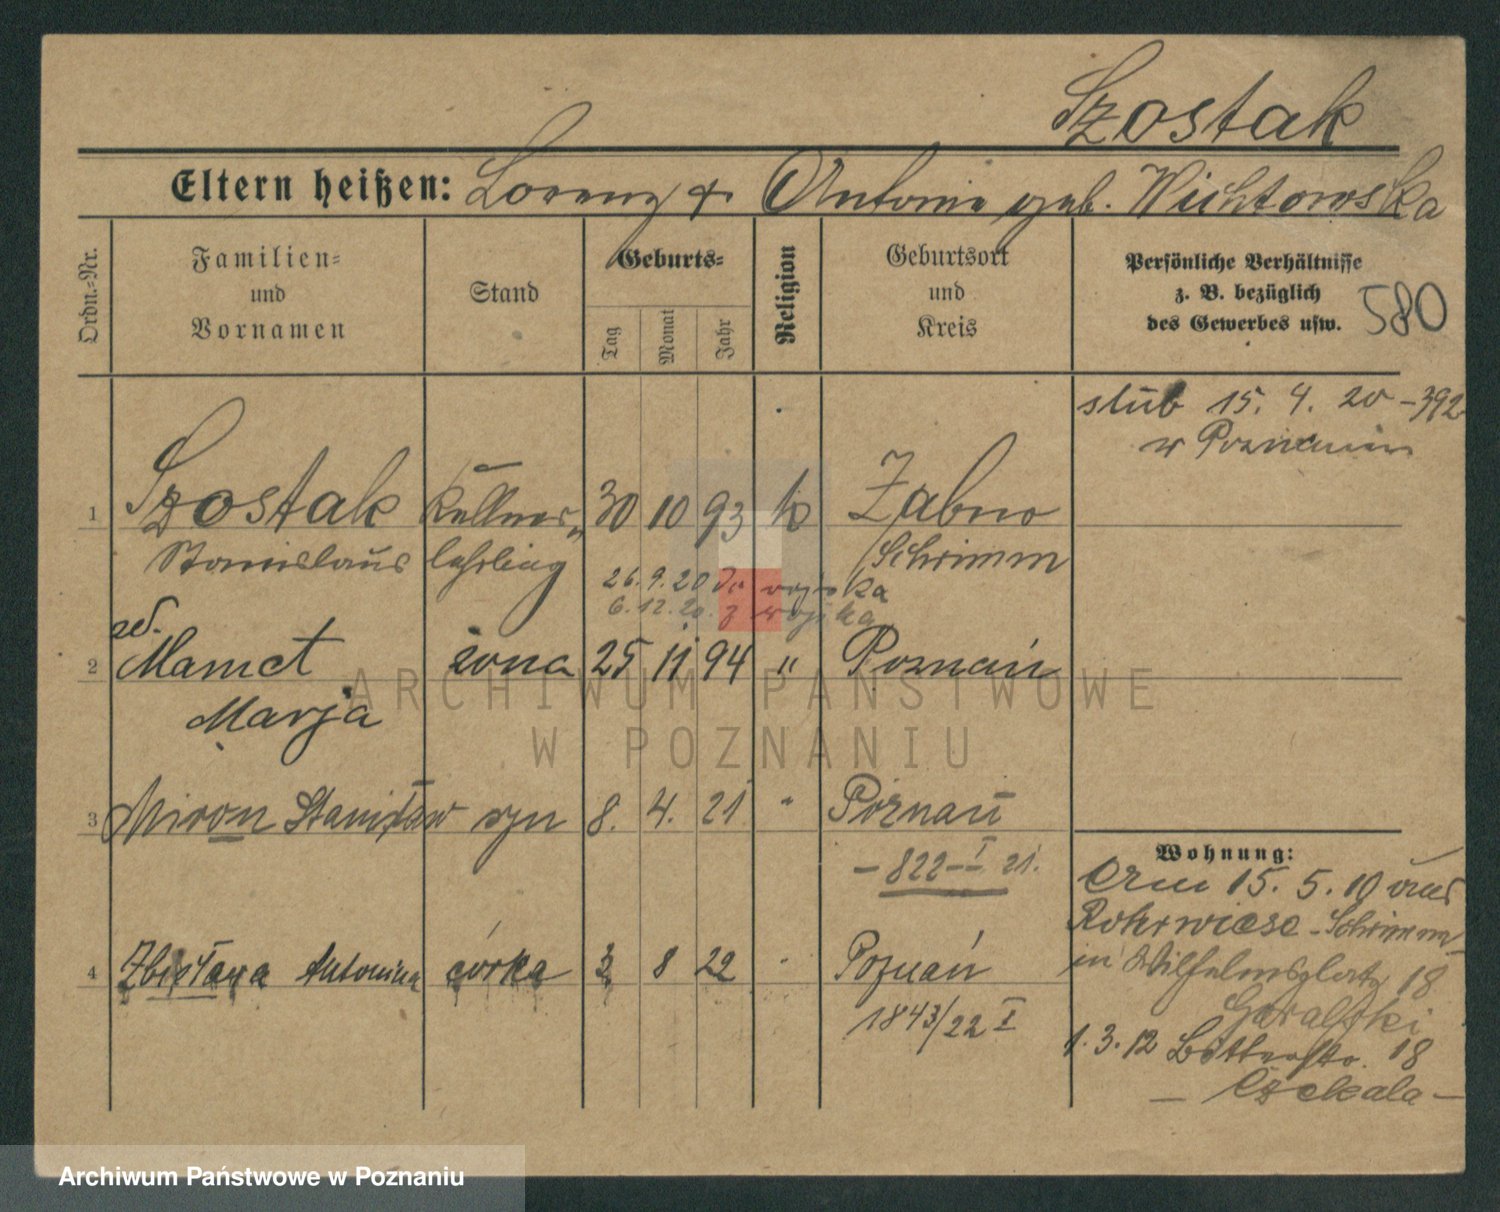 Szostak
Eltern heißen: Lorenz & Antonie geb. Wichtowska
Ordn.-Nr.
Familien- und Vornamen
Stand
Geburts-
Tag
Monat
Jahr
Religion
Geburtsort und Kreis
Persönliche Verhältnisse
z. B. bezüglich
des Gewerbes usw.
580
ślub 15. 4. 20 - 392
w Poznaniu
1 Szostak Kellner- 30 10 93 k Zabno
Stanislaus lehrling Schrimm
26. 9. 20 do wojska
6. 12. 20. z wojska
zd.
2 Mamet żona 25 11 94 " Poznań
Marja
3 Miron Stanisław syn 8. 4. 21 " Poznań
- 822 - I 21.
4 Antonina córka 3 8 22 " Poznań
1843/22 I
Wohnung:
am 15. 5. 10 aus
Rohrwiese - Schrimm
in Wilhelmsplatz 18
Goralski
1. 3. 12 18
- Czekala -
ARCHIWUM PAŃSTWOWE
W POZNANIU
Archiwum Państwowe w Poznaniu